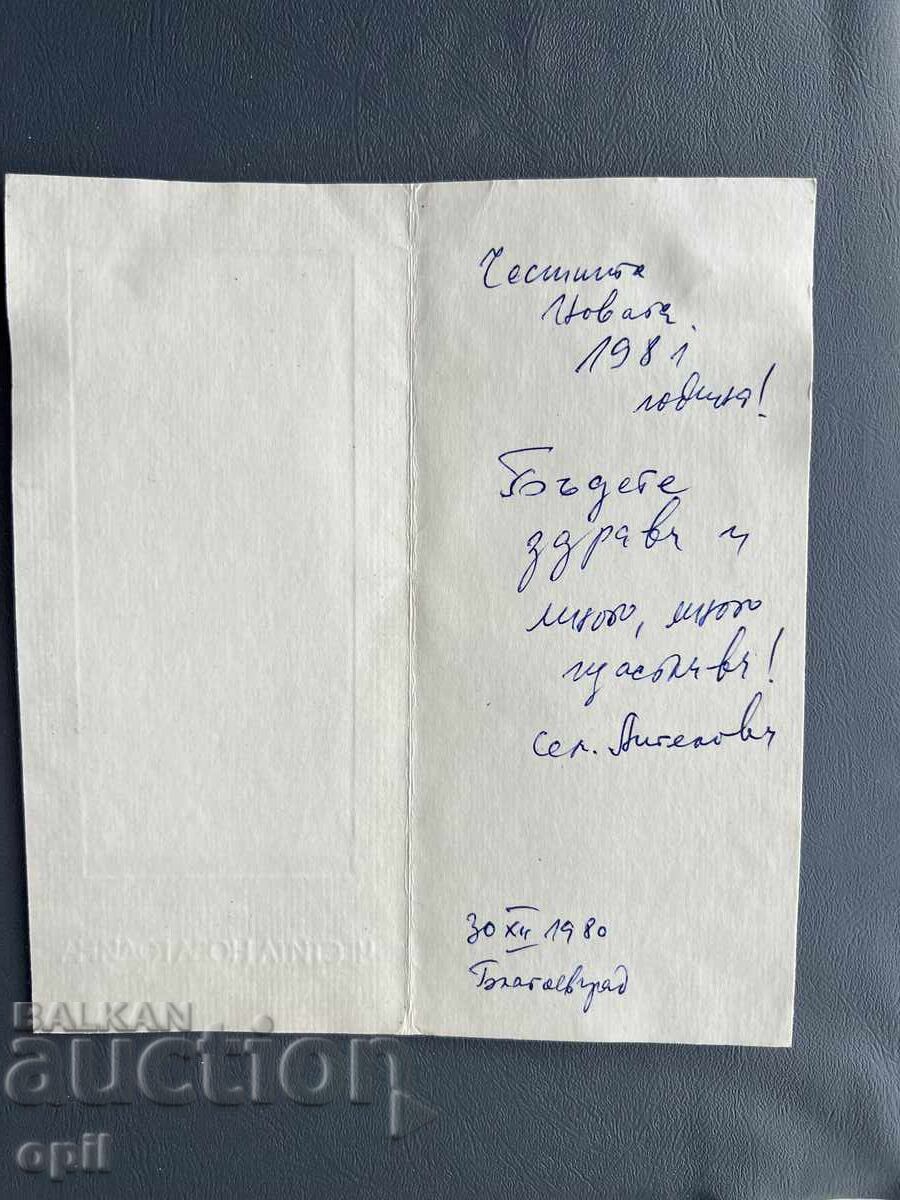 Честита
Новата
1981
година!
Бъдете
здрави и
много, много
щастливи!
Сем. Ангелови
30 XII 1980
Благоевград
BALKAN
auction
opil